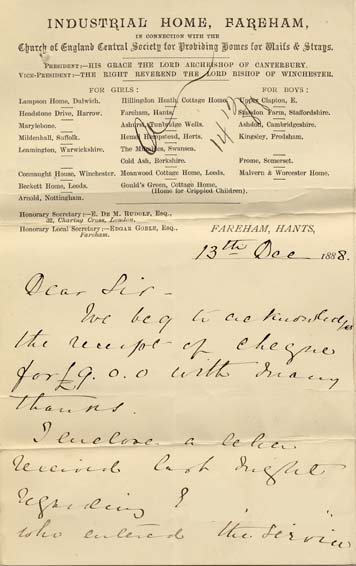 INDUSTRIAL HOME, FAREHAM,
IN CONNECTION WITH THE
Church of England Central Society for Providing Homes for Waifs & Strays.
PRESIDENT:—HIS GRACE THE LORD ARCHBISHOP OF CANTERBURY.
VICE-PRESIDENT:—THE RIGHT REVEREND THE LORD BISHOP OF WINCHESTER.
FOR GIRLS:
FOR BOYS:
Lampson Home, Dulwich.
Headstone Drive, Harrow.
Marylebone.
Mildenhall, Suffolk.
Leamington, Warwickshire.
Connaught House, Winchester.
Beckett Home, Leeds.
Arnold, Nottingham.
Hillingdon Heath, Cottage Home
Fareham, Hants.
Ashurst, Tunbridge Wells.
Hemel Hempstead, Herts.
The Mumbles, Swansea.
Cold Ash, Berkshire.
Meanwood Cottage Home, Leeds.
Gould's Green, Cottage Home,
(Home for Crippled Children).
Upper Clapton, E.
Standon Farm, Staffordshire.
Ashdon, Cambridgeshire.
Kingsley, Frodsham.
Frome, Somerset.
Malvern & Worcester Home.
Honorary Secretary:—E. DE M. RUDOLF, ESQ.,
32, Charing Cross, London.
Honorary Local Secretary:—EDGAR GOBLE, ESQ.,
Fareham.
FAREHAM, HANTS,
13th Dec 1888.
Dear Sir –
We beg to acknowledge
the receipt of cheque
for £9.0.0 with many
thanks.
I enclose a letter
received last night
regarding
who entered the service